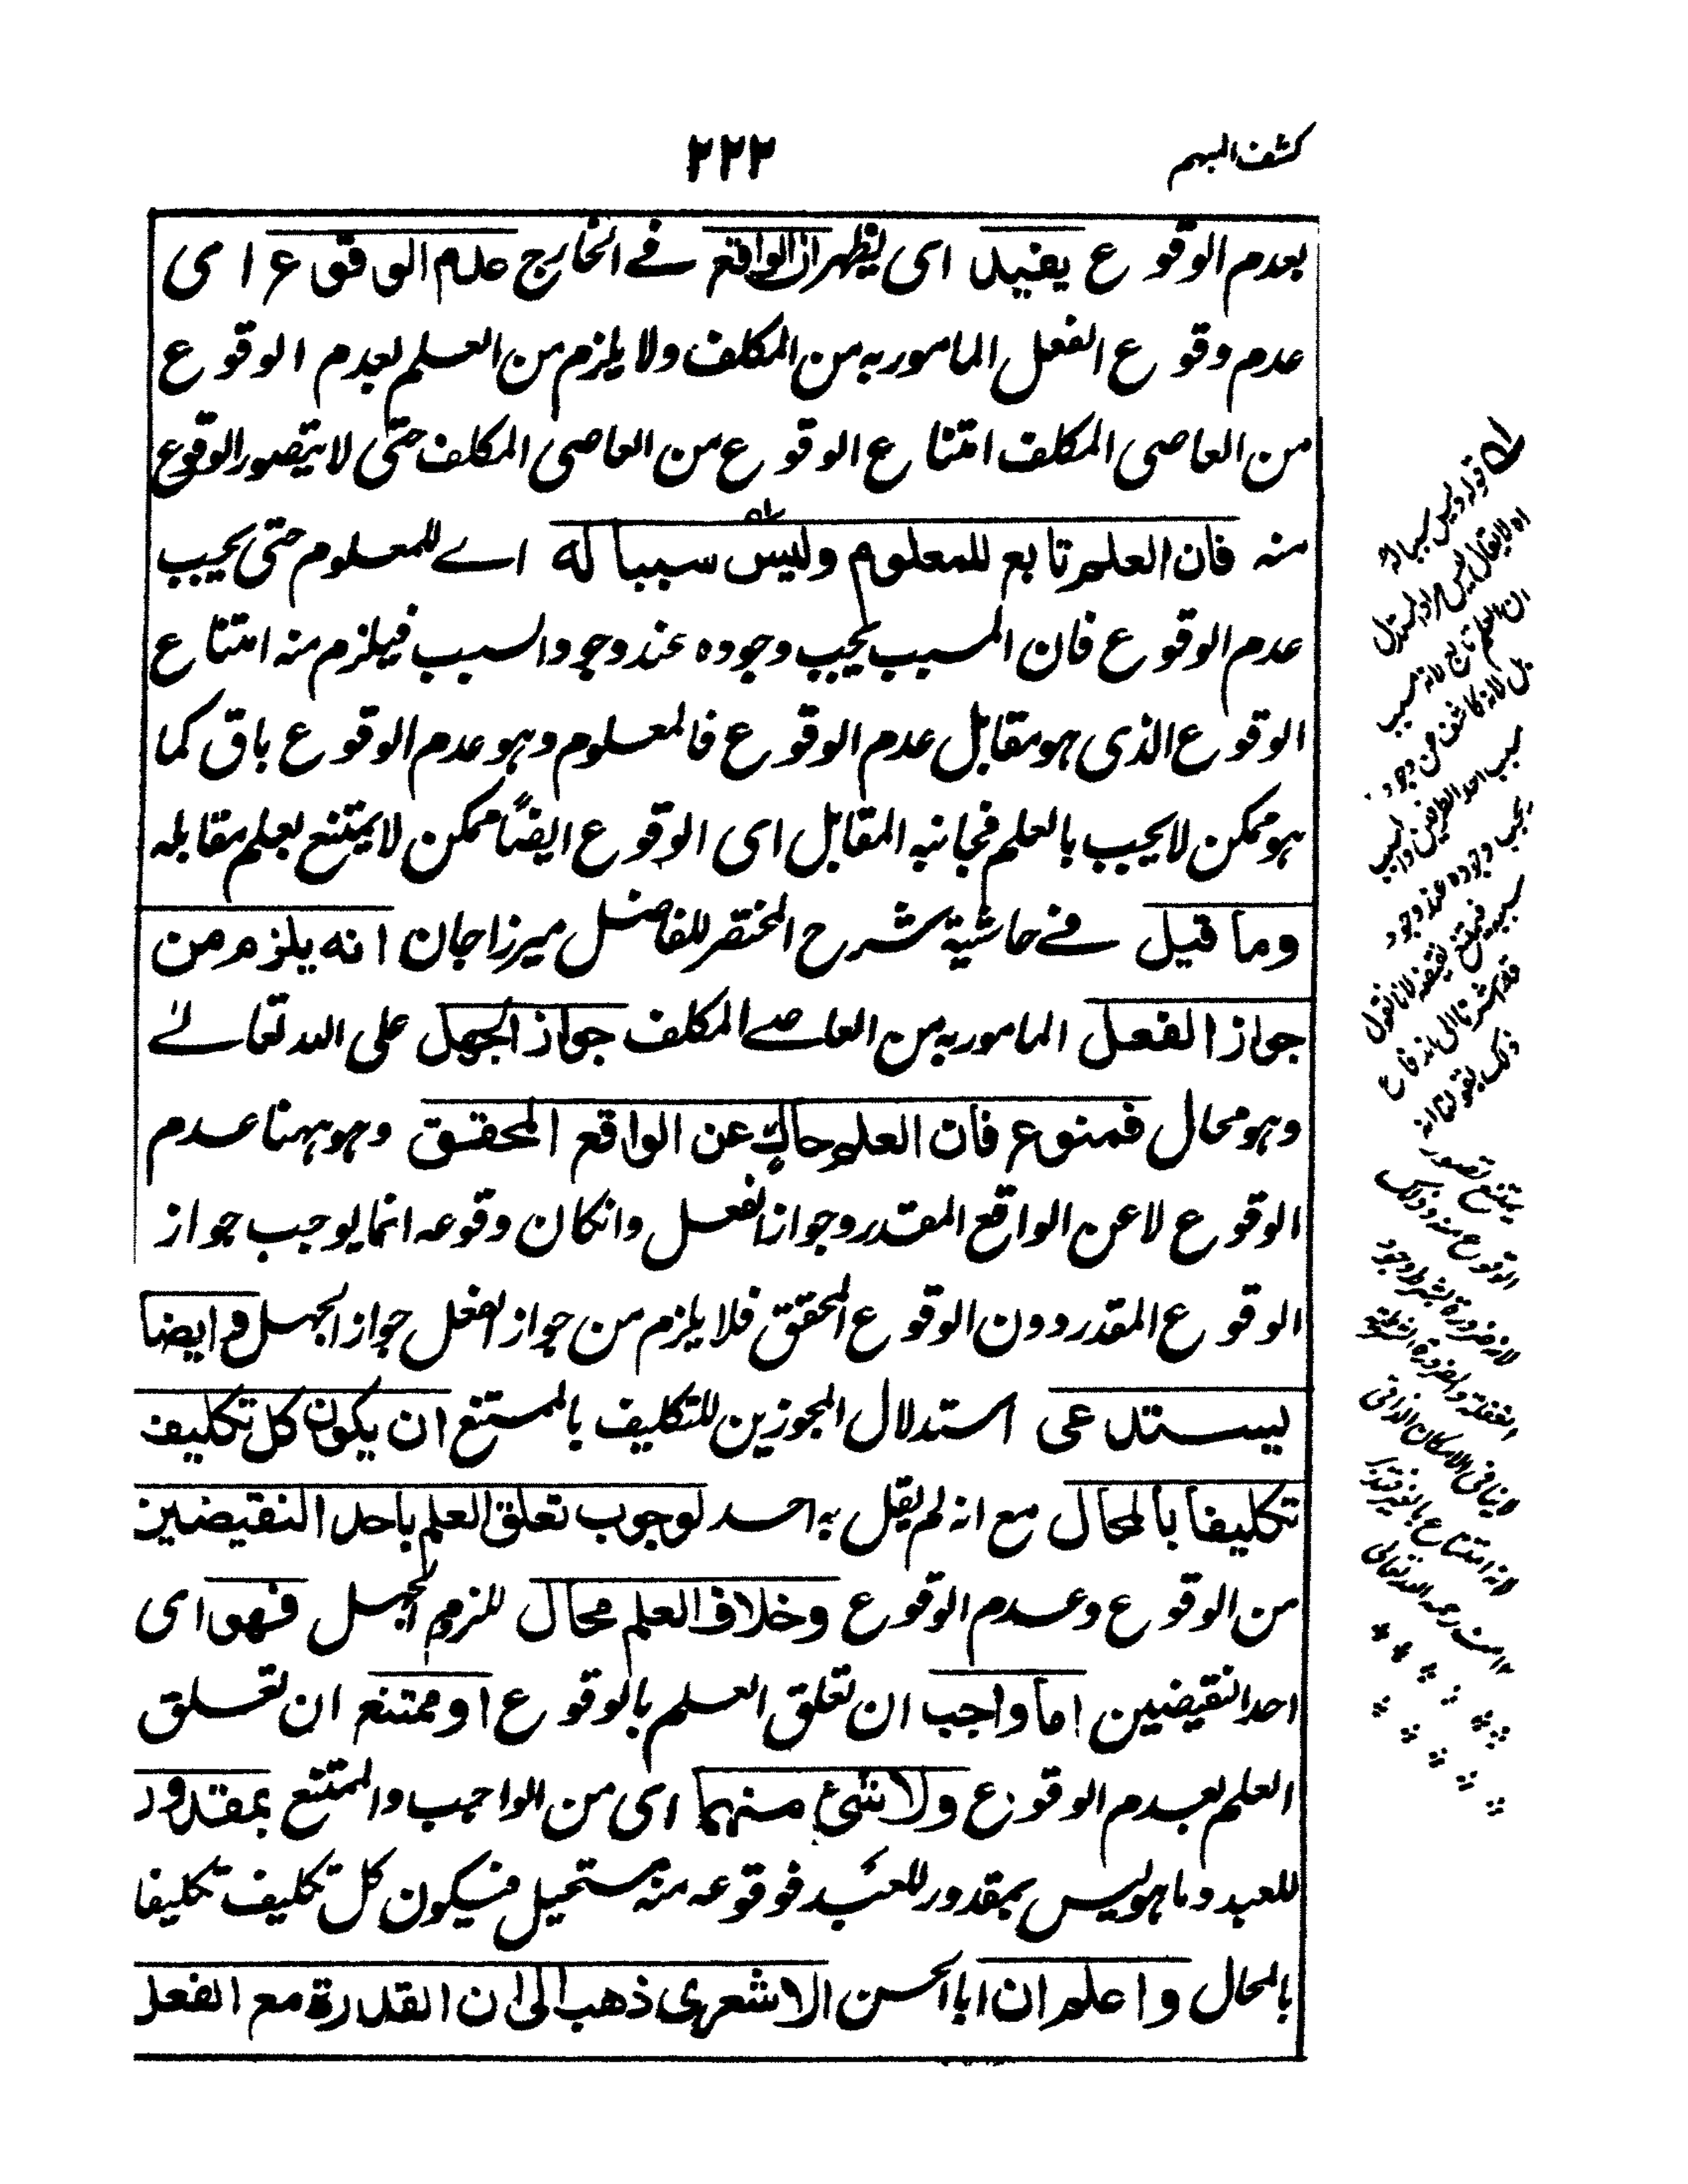 كشف المبهم
٢٢٢
بعدم الوقوع يفيد اى يظهر ان الواقع فے الخارج عدم الوقوع اى
عدم وقوع الفعل المامور به من المكلف ولا يلزم من العلم بعدم الوقوع
من العاصى المكلف امتناع الوقوع من العاصى المكلف حتى لا يتصور الوقوع
منه فان العلم تابع للمعلوم وليس سببا له اے للمعلوم حتى يجب
عدم الوقوع فان المسبب يجب وجوده عند وجود السبب فيلزم منه امتناع
الوقوع الذى هو مقابل عدم الوقوع فالمعلوم وهو عدم الوقوع باق كما
هو ممكن لا يجب بالعلم فجانبه المقابل اى الوقوع ايضاً ممكن لا يمتنع بعلم مقابله
وما قيل فے حاشية شرح المختصر للفاضل ميرزاجان انه يلزم من
جواز الفعل المامور به من العاصے المكلف جواز الجهل على الله تعالے
وهو محال فممنوع فان العلم حاك عن الواقع المحقق وهو ههنا عدم
الوقوع لا عن الواقع المقدر وجواز الفعل وامكان وقوعه انما يوجب جواز
الوقوع المقدر دون الوقوع المحقق فلا يلزم من جواز الفعل جواز الجهل و ايضا
يستدعى استدلال المجوزين للتكليف بالممتنع ان يكون كل تكليف
تكليفا بالمحال مع انه لم يقل به احد لوجوب تعلق العلم باحد النقيضين
من الوقوع وعدم الوقوع وخلاف العلم محال للزوم الجهل فهو اى
احد النقيضين اما واجب ان تعلق العلم بالوقوع او ممتنع ان تعلق
العلم بعدم الوقوع ولا شئ منهما اى من الواجب والممتنع بمقدور
للعبد وما هو ليس بمقدور للعبد فوقوعه منه مستحيل فيكون كل تكليف تكليفا
بالمحال واعلم ان ابا الحسن الاشعرى ذهب الى ان القدرة مع الفعل
قوله وليس سببا له
اه لا يقال ليس مراد المستدل
ان العلم تابع لانه سبب
بل لانه كاشف من وجود
سبب احد الطرفين والسبب
يجب وجوده عند وجود
سببه فيمتنع نقيضه لانا نقول
قد اشرنا الى اندفاع
ذلك بقولنا انه
يمتنع تصور
الوقوع منه وذلك
لانه ضرورة بشرط وجود
لا ينافى الامكان الذاتى
لانه امتناع بالغير فتدبر
منه رحمه الله تعالى